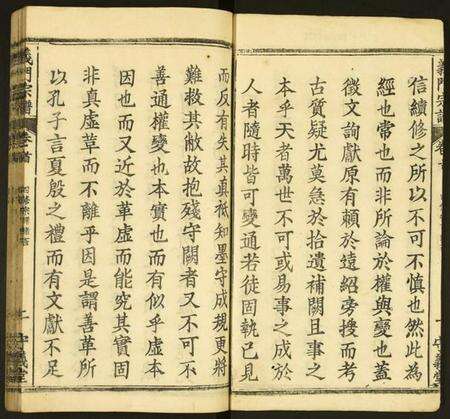 義門宗譜
卷首
信續修之所以不可不慎也然此為
經也常也而非所論於權與變也蓋
徵文詢獻原有賴於遠紹旁搜而考
古質疑尤莫急於拾遺補闕且事之
本乎天者萬世不可或易事之成於
人者隨時皆可變通若徒固執己見
而反有失其真祗知墨守成規更將
難救其敝故抱殘守闕者又不可不
善通權變也本實也而有似乎虛本
因也而又近於革虛而能究其實固
非真虛革而不離乎因是謂善革所
以孔子言夏殷之禮而有文獻不足
義門宗譜
卷首